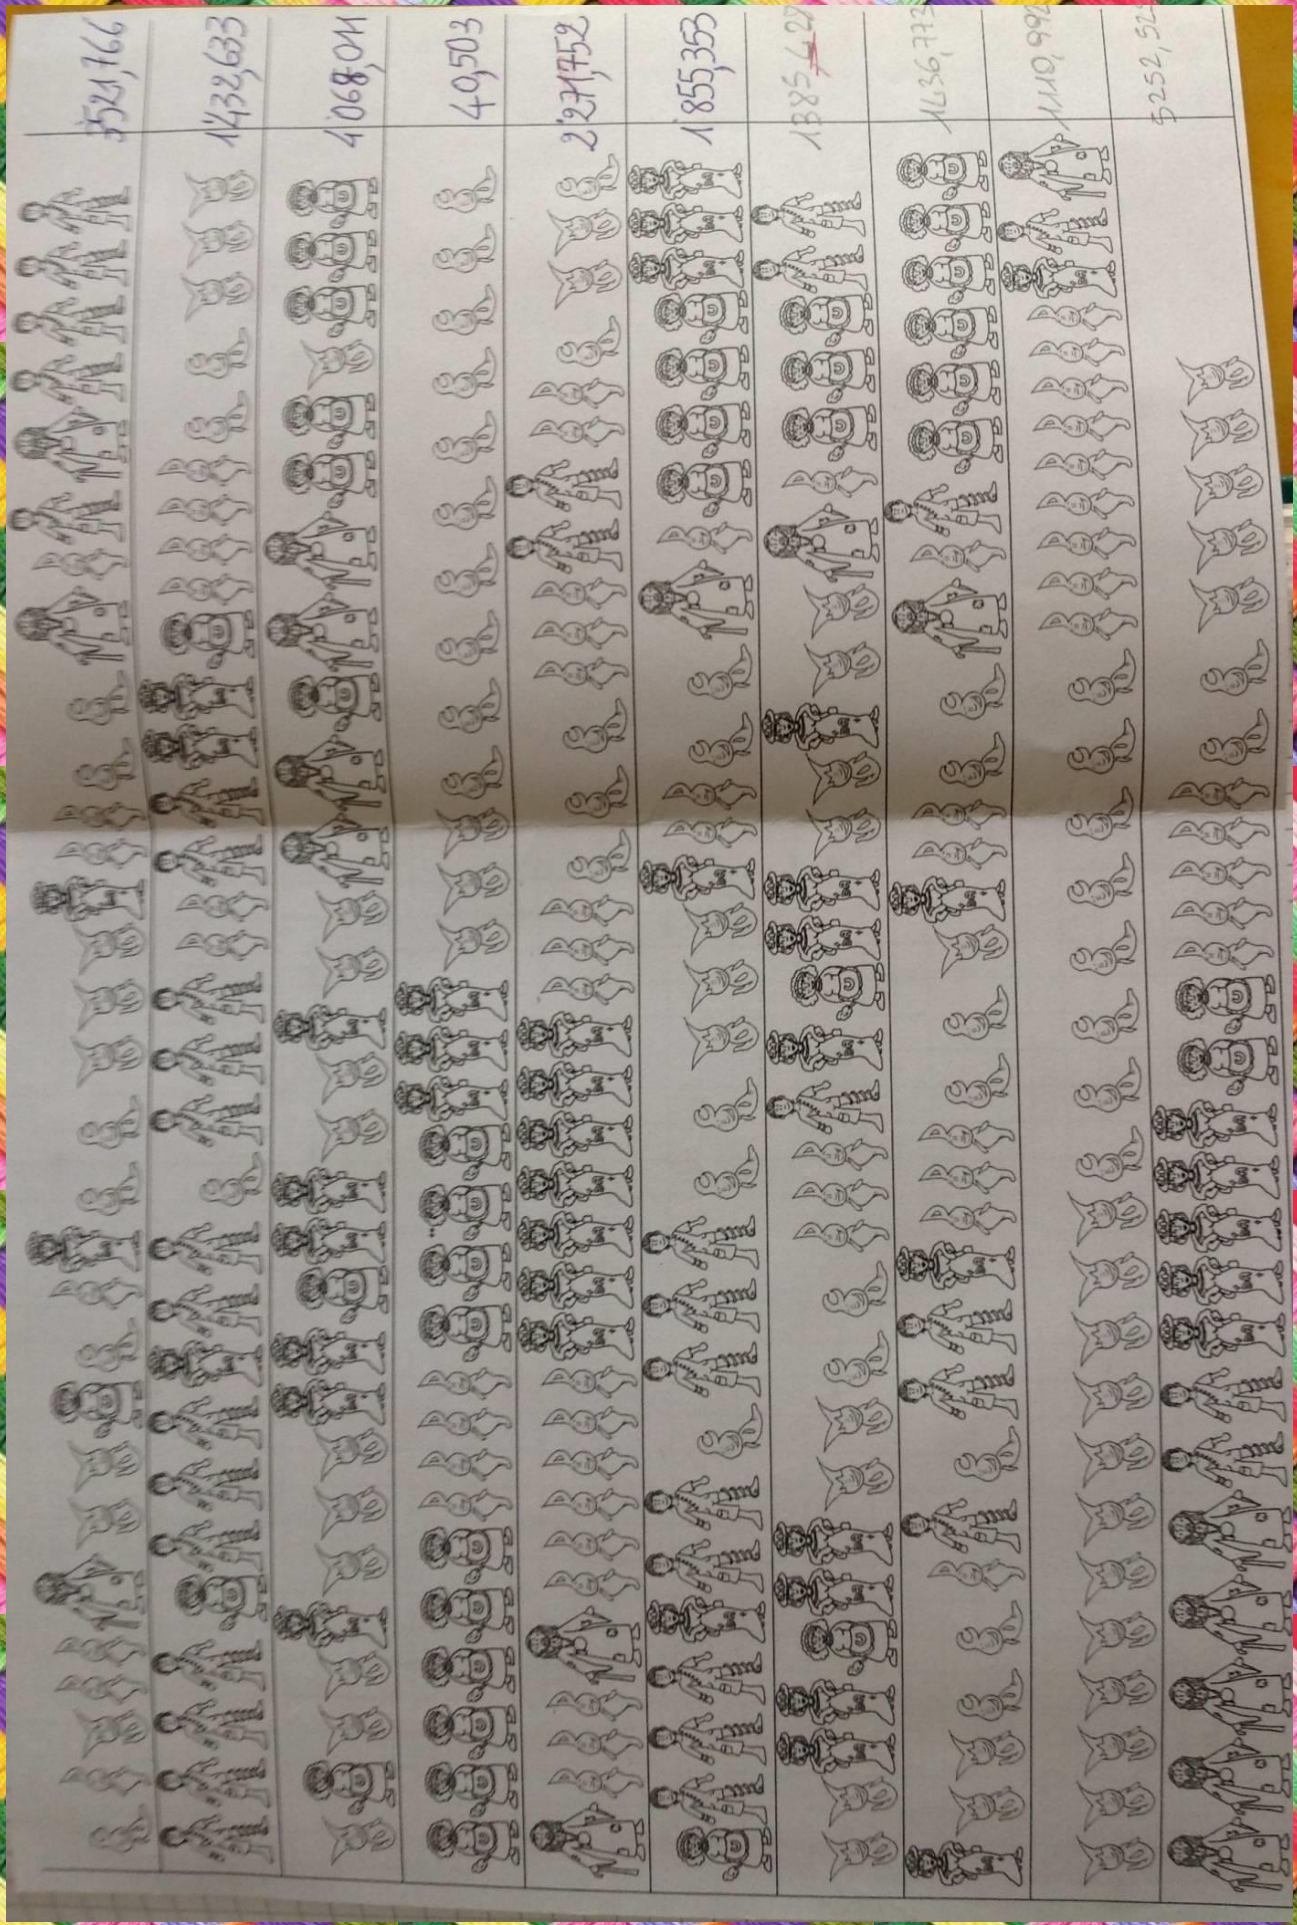 3'521,766
1'432,633
4'068,011
40,503
2'271,752
1'855,353
1385,427
1436,773
1110,992